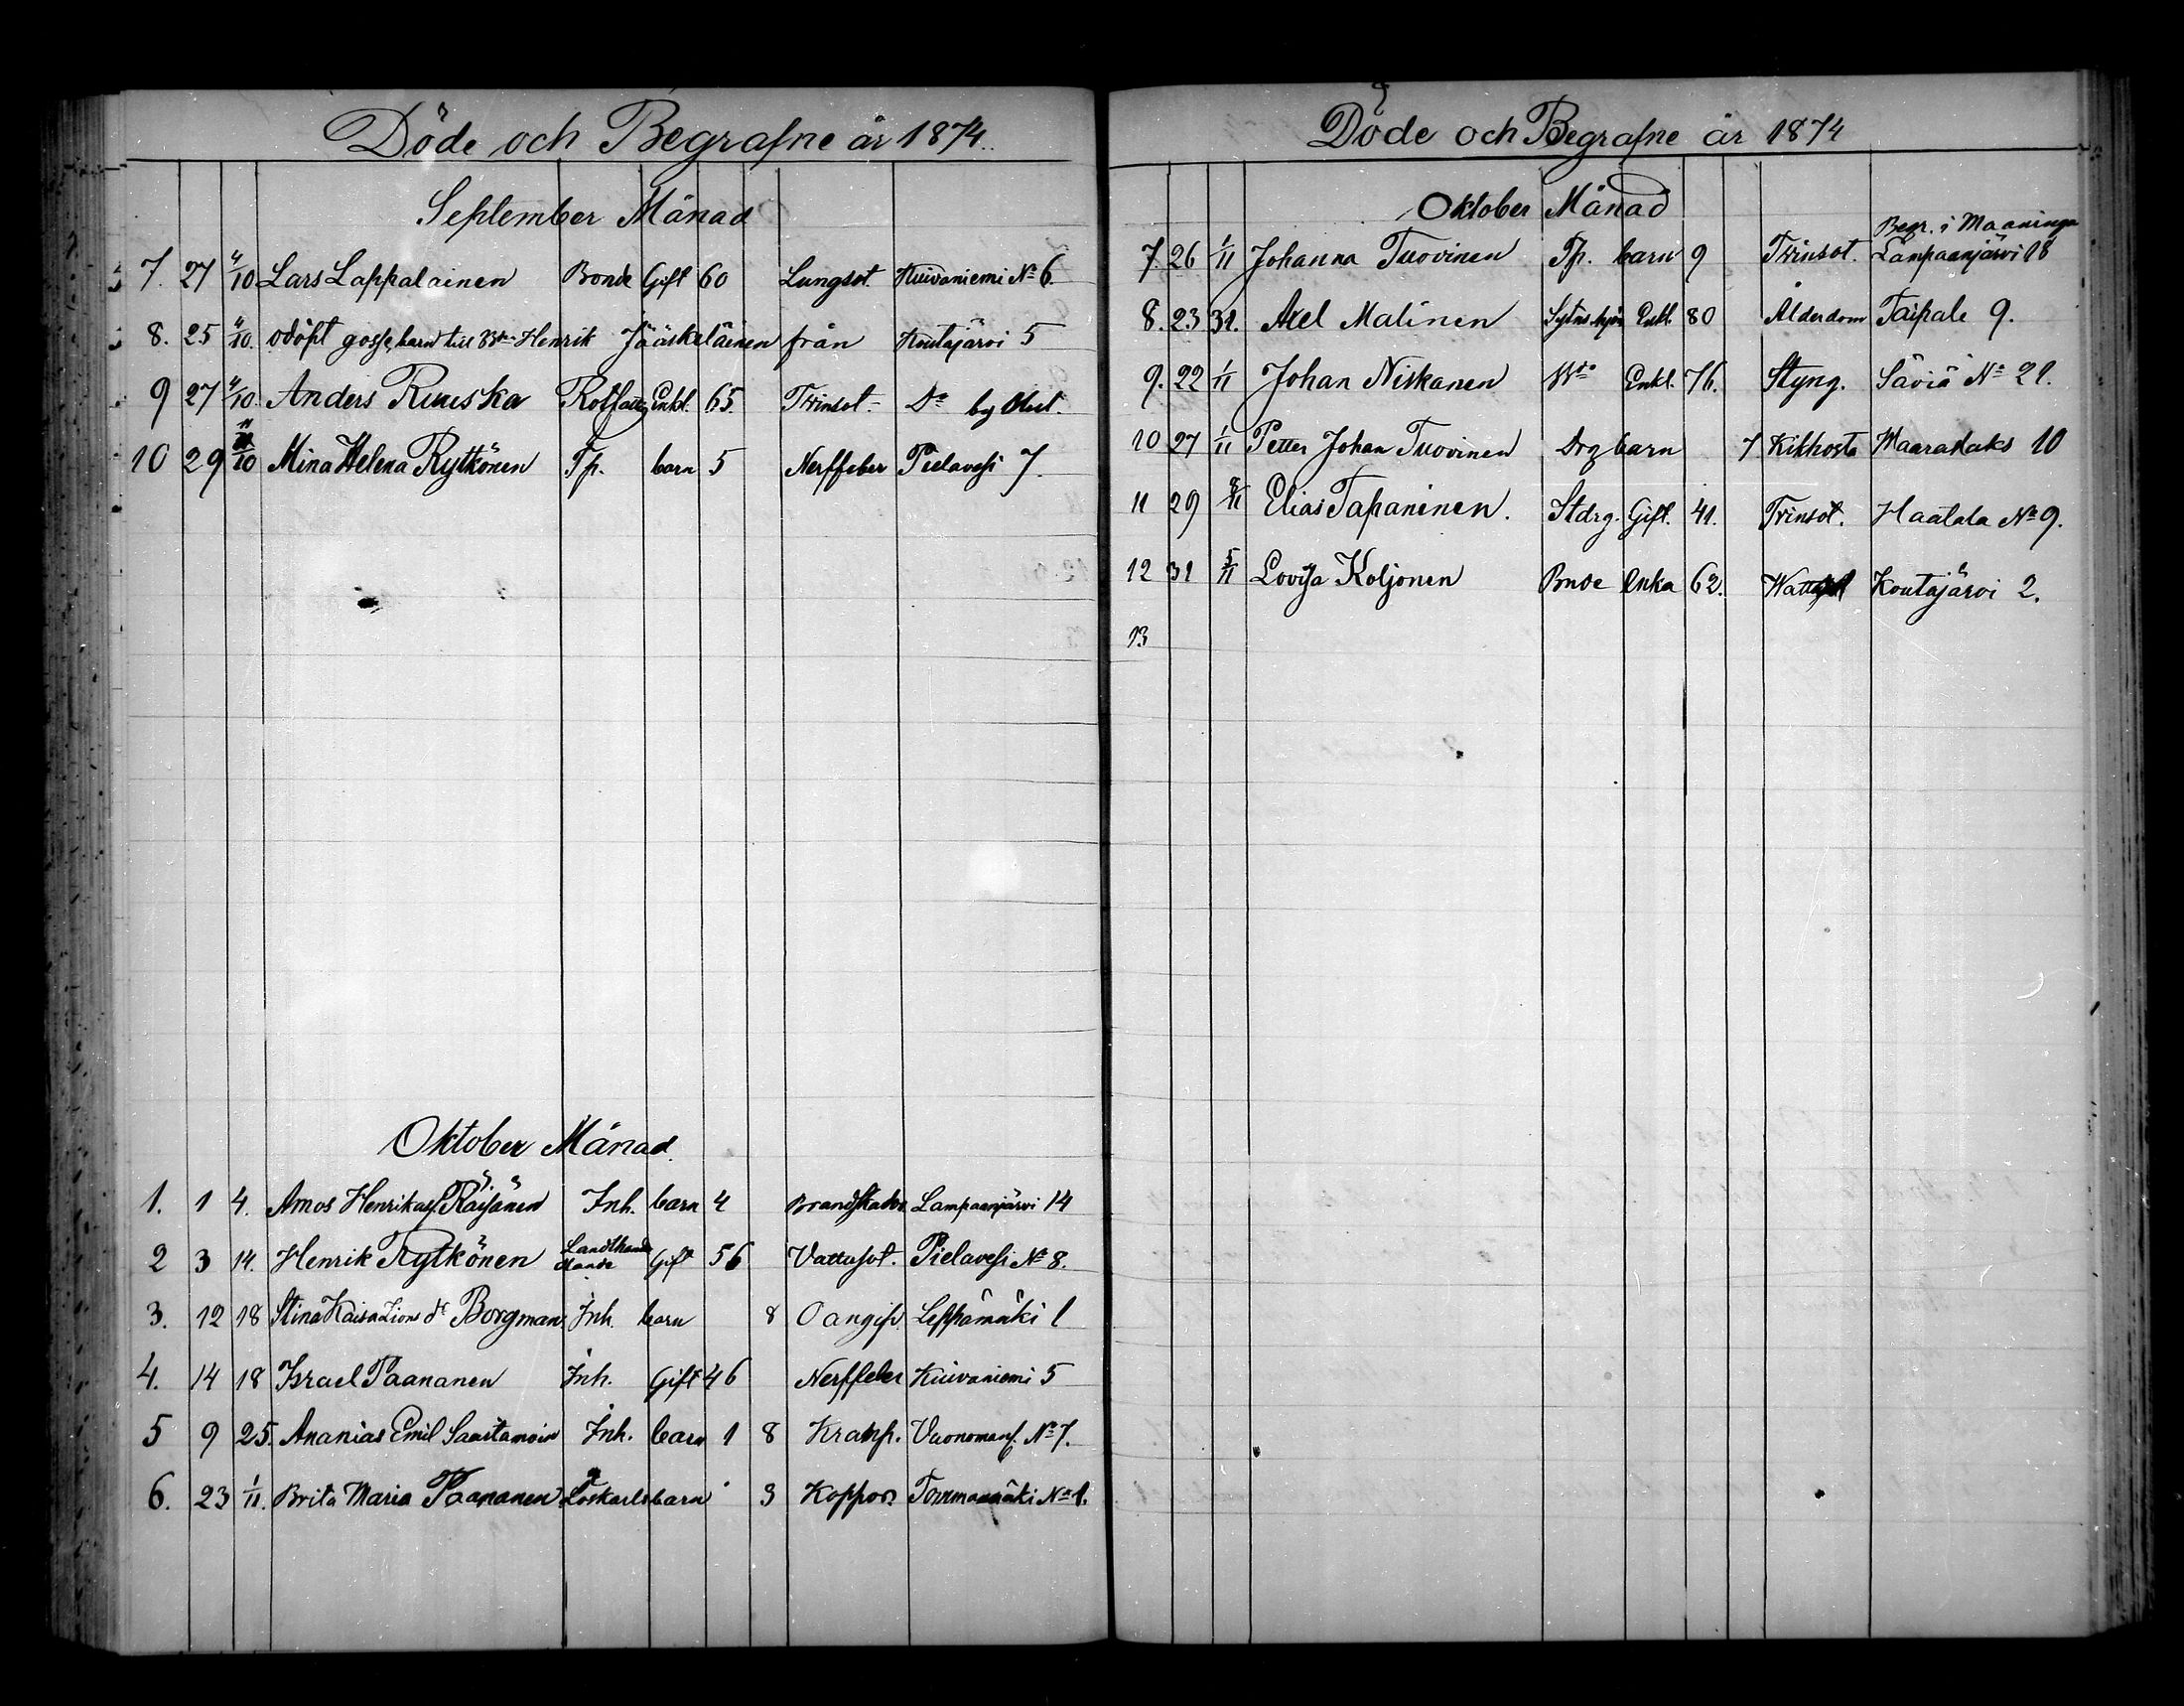 Döde och Begrafne år 1874.
September Månad
7. 27 4/10 Lars Lappalainen Bonde Gift 60 Lungsot. Kuivaniemi No 6.
8. 25 4/10. odöpt gosse, barn till Bde Henrik Jääskeläinen från Koutajärvi 5
9 27 4/10. Anders Ruuska Enkl. 65. Trinsot. Do by
10 29 11/10 Mina Helena Rytkönen Tp. barn 5 Nerffeber Pielavesi 7.
Oktober Månad.
1. 1 4. Amos Henrikass. Räisänen Inh. barn 4 Brandskador Lampaanjärvi 14
2 3 14. Henrik Rytkönen Landthand
lande Gift 56 Vattusot. Pielavesi No 8.
3. 12 18 Stina Kaisa Lions dr Borgman Inh. barn 8 Oangifv. Leppämäki 1
4. 14 18 Israel Paananen Inh. Gift 46 Nerffeber Kuivaniemi 5
5 9 25. Ananias Emil Saastamoin Inh. barn 1 8 Kramp. Vuonoman. No 7.
6. 23 1/11. Brita Maria Paananen Löskarls barn 3 Koppor Tommanmäki No 1.
Döde och Begrafne år 1874
Oktober Månad
Begr. i Maaninga
7. 26 1/11 Johanna Tuovinen Tp. barn 9 Trinsot. Lampaanjärvi 18
8. 23 31. Axel Malinen Sytns hjon Enkl. 80 Ålderdom Taipale 9.
9. 22 1/11 Johan Niskanen Bde Enkl. 76. Styng. Säviä No 21.
10 27 1/11 Petter Johan Tuovinen Drg barn 7 Kikhosta Maaralaks 10
11 29 8/11 Elias Tapaninen. Stdrg. Gift. 41. Trinsot. Haatala No 9.
12 31 5/11 Lovisa Koljonen Bnde Enka 62. Koutajärvi 2.
13